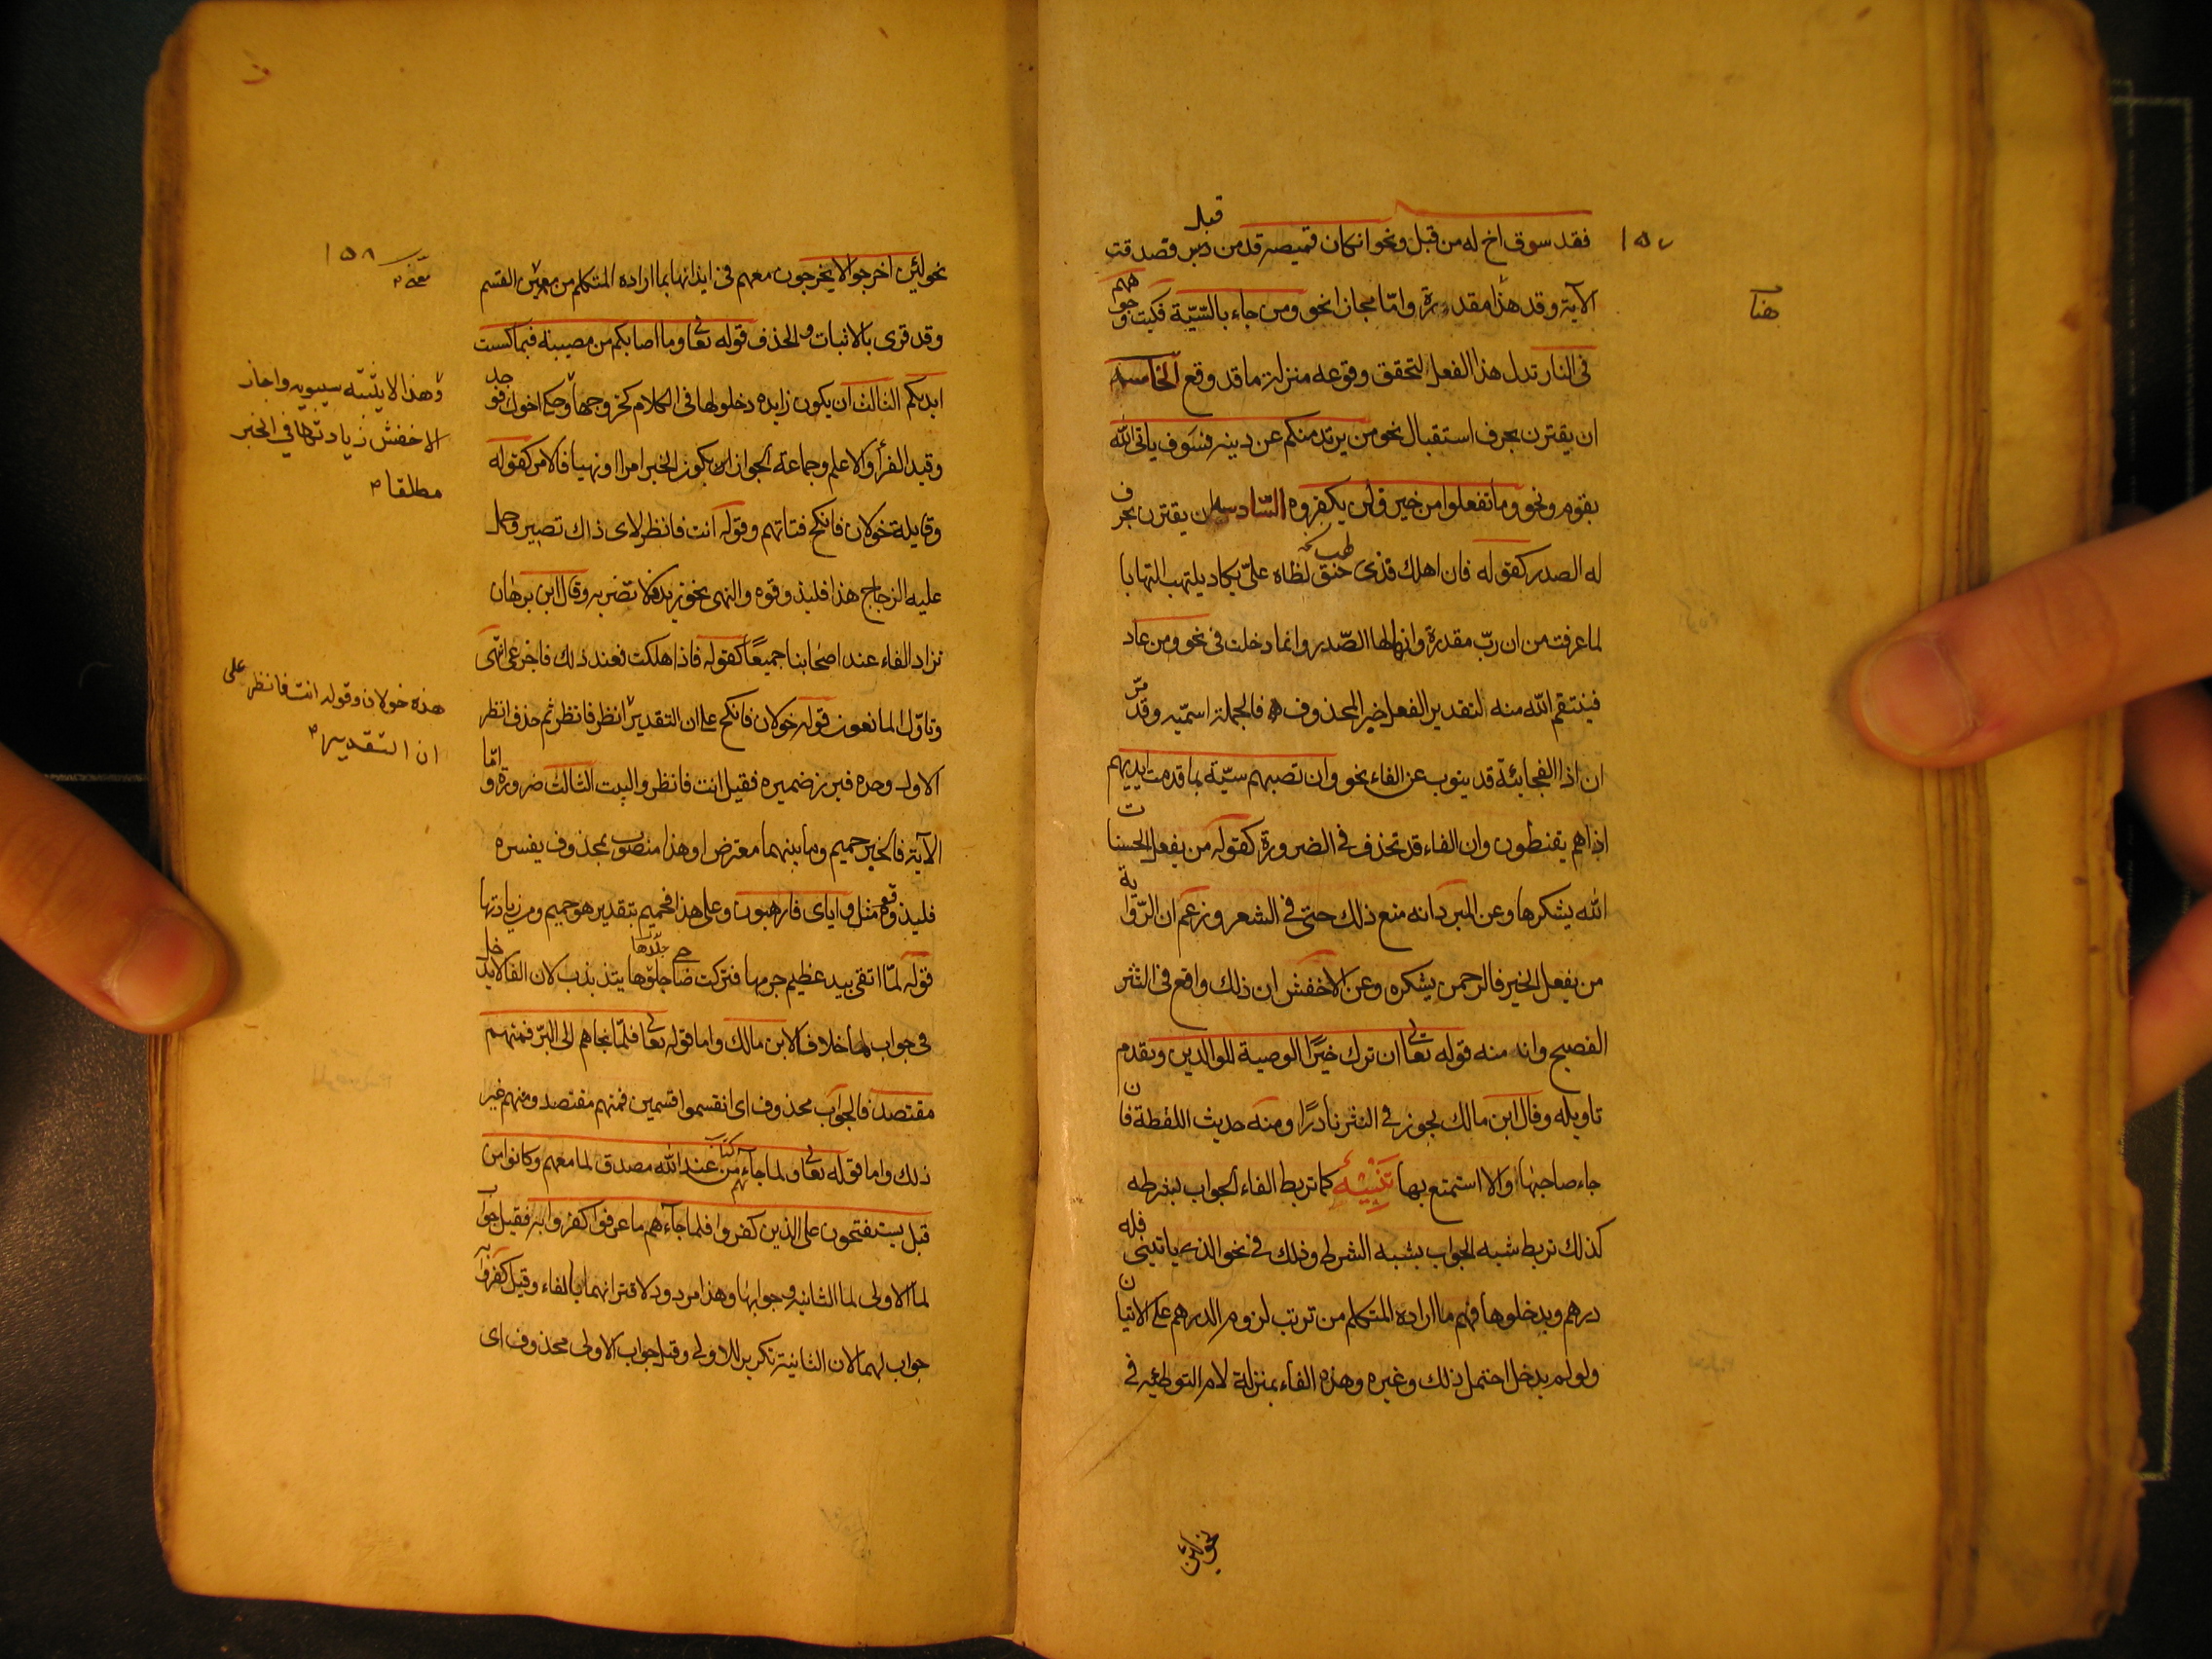 ١٥٧
فقد سرق اخ له من قبل ونحو ان كان قميصه قد من دبر فصدقت
قبل
الآية وقد هذا مقدرة واما مجازا نحو ومن جاء بالسّيّة فكبت وجوههم
هنا
فى النار تدل هذا الفعل لتحقق وقوعه منزلة ما قد وقع الخامسة
ان يقترن بحرف استقبال نحو من يرتد منكم عن دينه فسوف ياتى الله
بقوم ونحو وما تفعلوا من خير فلن يكفروه السّادسة ان يقترن بحرف
له الصدر كقوله فان اهلك فذى حنق لظاه علىّ يكاد يلتهب التهابا
لما عرفت من ان ربّ مقدرة وانها لها الصّدر وانما دخلت فى نحو ومن عاد
فينتقم الله منه لتقدير الفعل خبر المحذوف فالجملة اسميّه وقد مرّ
ان اذا الفجائة قد ينوب عن الفاء نحو وان تصبهم سيّة بما قدمت ايديهم
اذا هم يقنطون وان الفاء قد تحذف فى الضرورة كقوله من يفعل الحسنات
الله يشكرها وعن المبرد انه منع ذلك حتى فى الشعر وزعم ان الرّواية
من يفعل الخير فالرحمن يشكره وعن الاخفش ان ذلك واقع فى النثر
الفصيح وانه منه قوله تعالى ان ترك خيرًا الوصية للوالدين وتقدم
تاويله وقال ابن مالك يجوز فى النثر نادرًا ومنه حديث اللقطة فان
جاء صاحبها والا استمتع بها تنبيه كما تربط الفاء الجواب بشرطه
كذلك تربط شبه الجواب بشبه الشرط وذلك فى نحو الذى ياتينى فله
درهم وبدخلوها فهم ما اراده المتكلم من ترتب لزوم الدرهم على الاتيان
ولو لم يدخل احتمل ذلك وغيره وهذه الفاء بمنزلة لام التوطئه فى
نحو لئن
١٥٨
نحو لئن اخرجوا لا يخرجون معهم فى ايذانها بما اراده المتكلم من معنى القسم
وقد قرى بالاثبات والحذف قوله تعالى وما اصابكم من مصيبة فبما كسبت
ايديكم الثالث ان يكون زايده دخلولها فى الكلام كخروجها وحكا اخوك فوجد
وهذا لا يثبته سيبويه واجاز
الاخفش زيادتها في الخبر
مطلقا
وقيد الفرأ والاعلم وجماعة الجواز ان بكون الخبر امرا او نهيا فالامر كقوله
وقايلة خولان فانكح فتاتهم وقوله انت فانظر لاى ذاك تصير وحمل
عليه الزجاج هذا فليذوقوه والنهى نحو زيد فلا تضربه وقال ابن برهان
تزاد الفاء عند اصحابنا جميعًا كقوله فاذا هلكت فعند ذلك فاجزعى انتهى
وتاوّل المانعون قوله خولان فانكح على ان التقدير انظر فانظر ثم حذف انظر
هذه خولان وقوله انت فانظر على
ان التقدير
الاول وحده فبرز ضميره فقيل انت فانظر والبيت الثالث ضرورة و امّا
الآية فالخبر حميم وما بينهما معترض او هذا منصوب بمحذوف يفسره
فليذوقوه مثل واياى فارهبون وعلى هذا فحميم بتقدير هو حميم ومن زيادتها
قوله لمّا اتقى بيد عظيم جرمها فتركت ضاحى جلدها يتذبذب لان الفا لا يدخل
فى جواب لما خلافا لابن مالك واما قوله تعالى فلمّا نجاهم الى البرّ فمنهم
مقتصد فالجواب محذوف اى انقسموا قسمين فمنهم مقتصد ومنهم غير
ذلك واما قوله تعالى ولما جاءهم كتاب من عند الله مصدق لما معهم وكانوا من
قبل يستفتحون على الذين كفروا فلما جآءهم ما عرفوا كفروا به فقيل جواب
لما الاولى لما الثانيه وجوابها وهذا مردود لاقترانهما بالفاء وقيل كفروا به
جواب لهما لان الثانية تكرير للاولى وقيل جواب الاولى محذوف اى